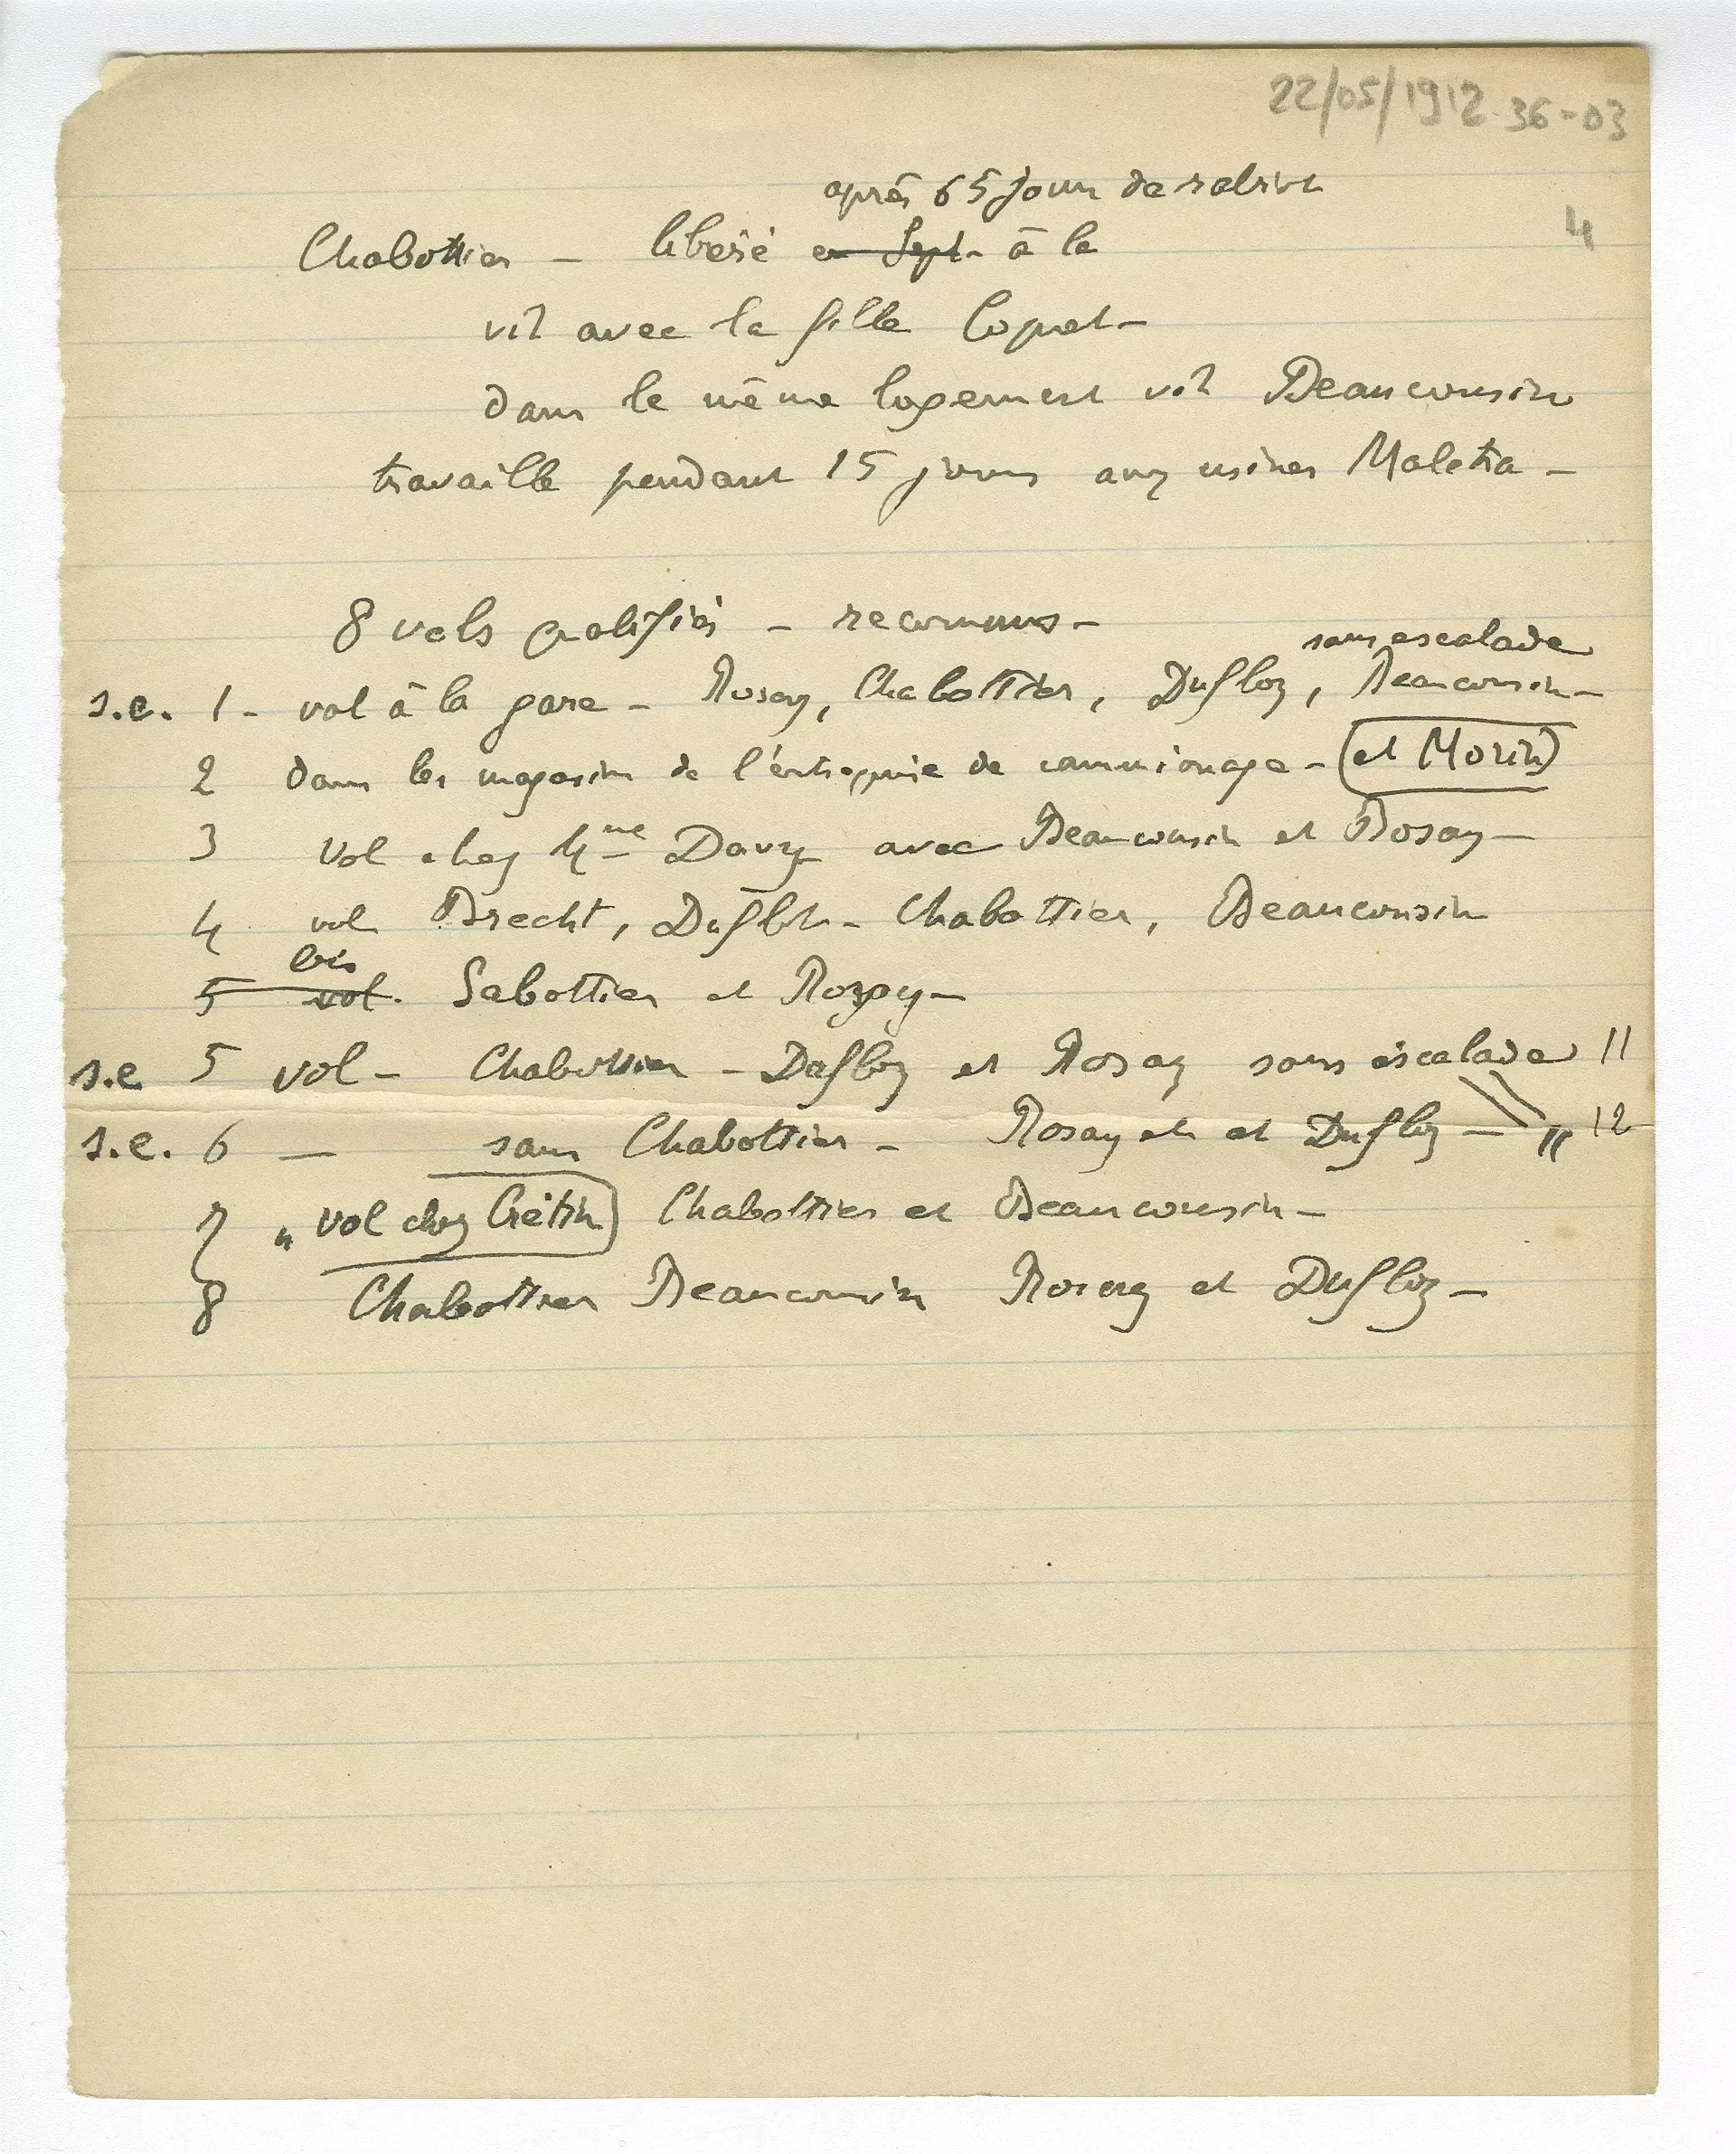 22/05/1912 36-03
4
après 65 jours de
Chabottier - libéré en Sept- à la
vit avec la fille Copret-
dans le même logement vit Beaucousin
travaille pendant 15 jours aux usines Maletra -
8 vols qualifiés - reconnus-
sans escalade
s.e. 1 - vol à la gare - Rosay, Chabottier, Dufloz, Beaucousin-
2 dans les magasins de l'entreprise de camionnage - (et Morin)
3 vol chez Mme Davy avec Beaucousin et Rosay-
4 vol Brecht, Dufloz - Chabottier, Beaucousin
bis
5 vol. Sabottier et Rosay-
s.e 5 vol - Chabottier - Dufloz et Rosay sans escalade 11
s.e. 6 - sans Chabottier - Rosay et et Dufloz - " 12
7 " vol chez Crétin) Chabottier et Beaucousin -
8 Chabottier Beaucousin Rosay et Dufloz -